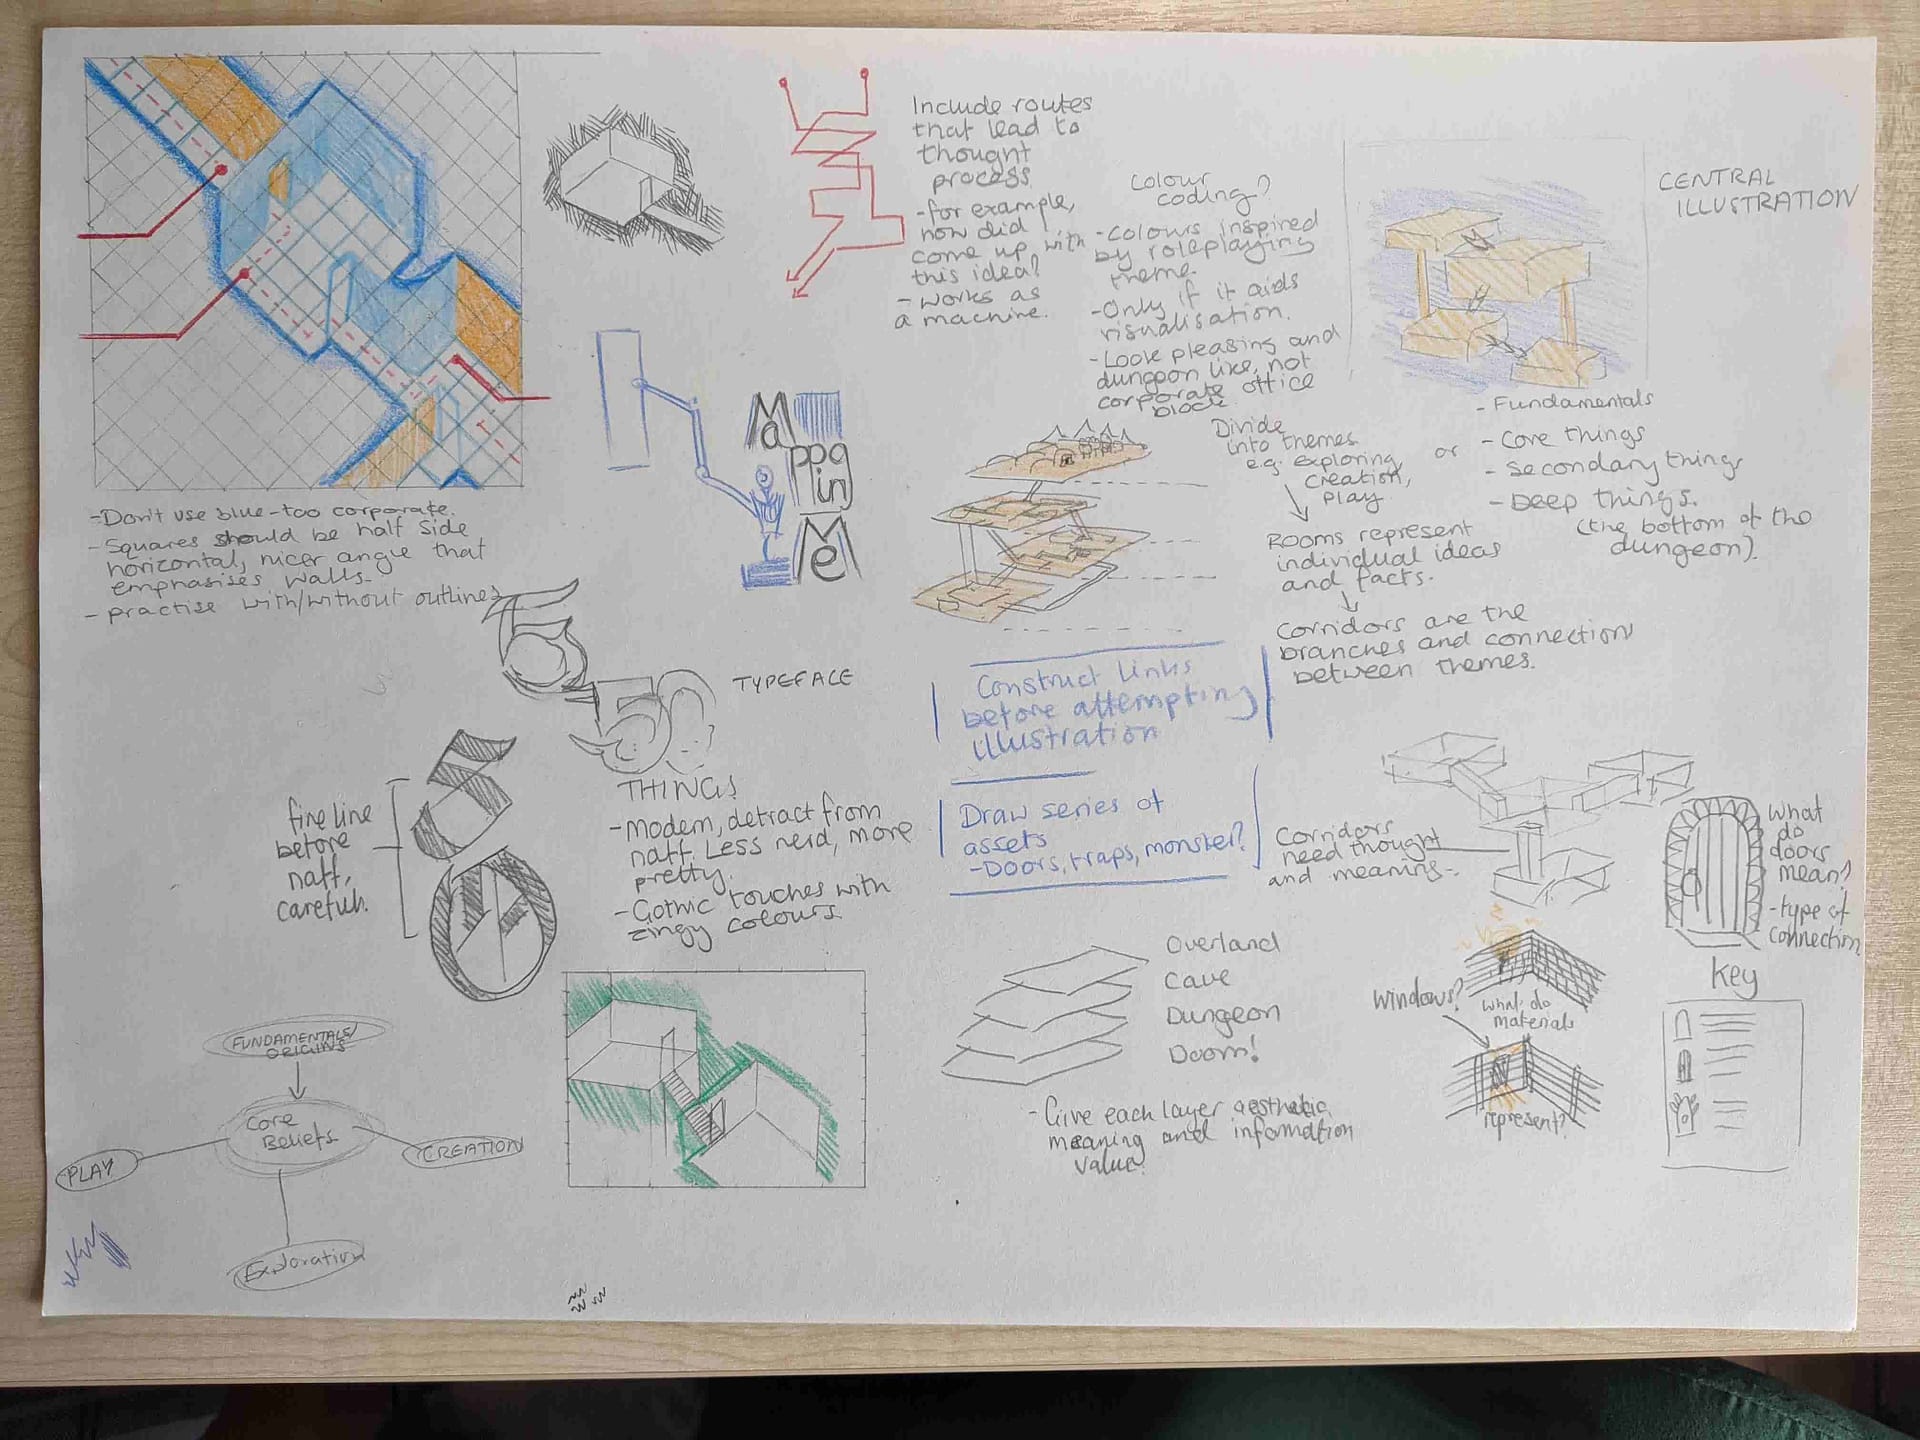 Include routes
that lead to
thought
process
-for example,
how did I
come up with
this idea?
- works as
a machine.
Colour
coding?
-colours inspired
by roleplaying
theme.
-Only if it aids
visualisation.
-Look pleasing and
dungeon like, not
corporate office
block.
CENTRAL
ILLUSTRATION
- Fundamentals
- Core things
- Secondary things
- Deep things.
(the bottom of the
dungeon).
Divide
into themes
e.g. exploring,
creation,
play
or
Rooms represent
individual ideas
and facts.
Corridors are the
branches and connection
between themes.
-Don't use blue-too corporate.
-Squares should be half side
horizontal, nicer angle that
emphasises walls.
- practise with/without outlines
Mapping
Me
TYPEFACE
50
THINGS
-Modern, detract from
naff. Less nerd, more
pretty.
-Gothic touches with
zingy colours.
fine line
before
naff,
careful.
50
Construct links
before attempting
illustration
Draw series of
assets
-Doors, traps, monster?
Corridors
need thought
and meaning-.
What
do
doors
mean?
-type of
connection
Overland
Cave
Dungeon
Doom!
-Give each layer aesthetic
meaning and information
value.
Windows?
what do
materials
represent?
Key
FUNDAMENTALS/
ORIGINS
Core
Beliefs
PLAY
CREATION
Exploration